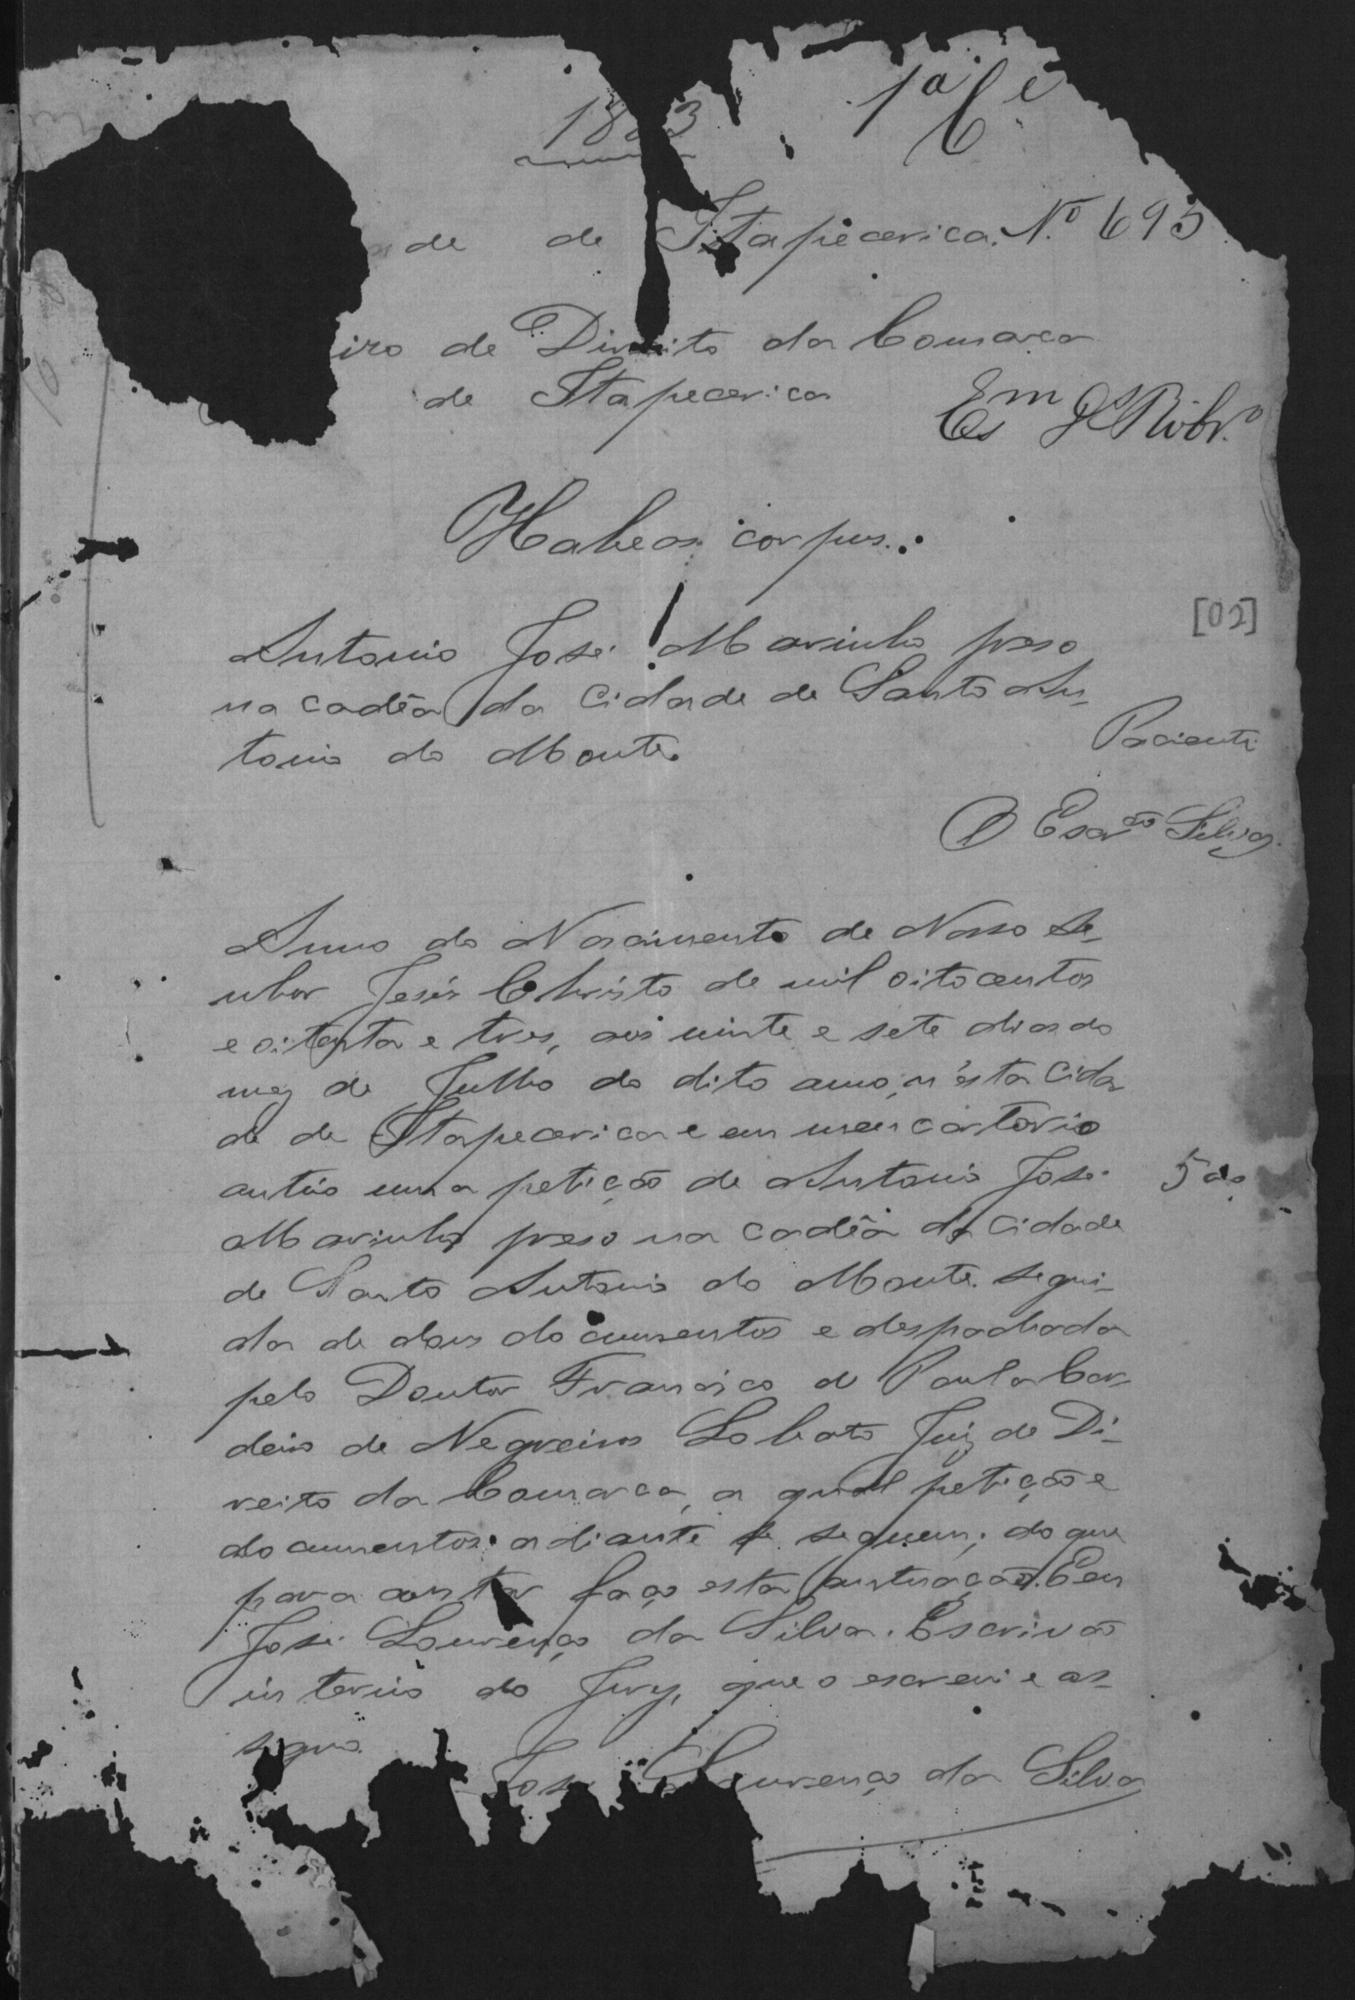 1883
de de Itapecerica. Nº 695
iro de Direito da Comarca
de Itapecerica
Habeas corpus.
[02]
Antonio José Marinho preso
na cadêa da Cidade de Santo An_
tonio do Monte.
Paciente
O Escrᵃᵒ Silva
Anno do Nascimento de Nosso Se_
nhor Jesús Christo de mil oitocentos
e oitenta e tres, aos vinte e sete dias do
mez de Julho do dito anno, n'esta Cida
de de Itapecerica e em meu cartorio
autúo uma petição de Antonio José
Marinho preso na cadêa da Cidade
de Santo Antonio do Monte segui_
da de dous documentos e despachada
pelo Doutor Francisco de Paula Cor_
deiro de Negreiros Lobato Juiz de Di_
reito da Comarca, a qual petição e
documentos adiante se seguem; do que
para constar faço esta autuação. Eu
José Lourenço da Silva. Escrivão
interino do Jury, que o escrevi e as_
signo.
José Lourenço da Silva